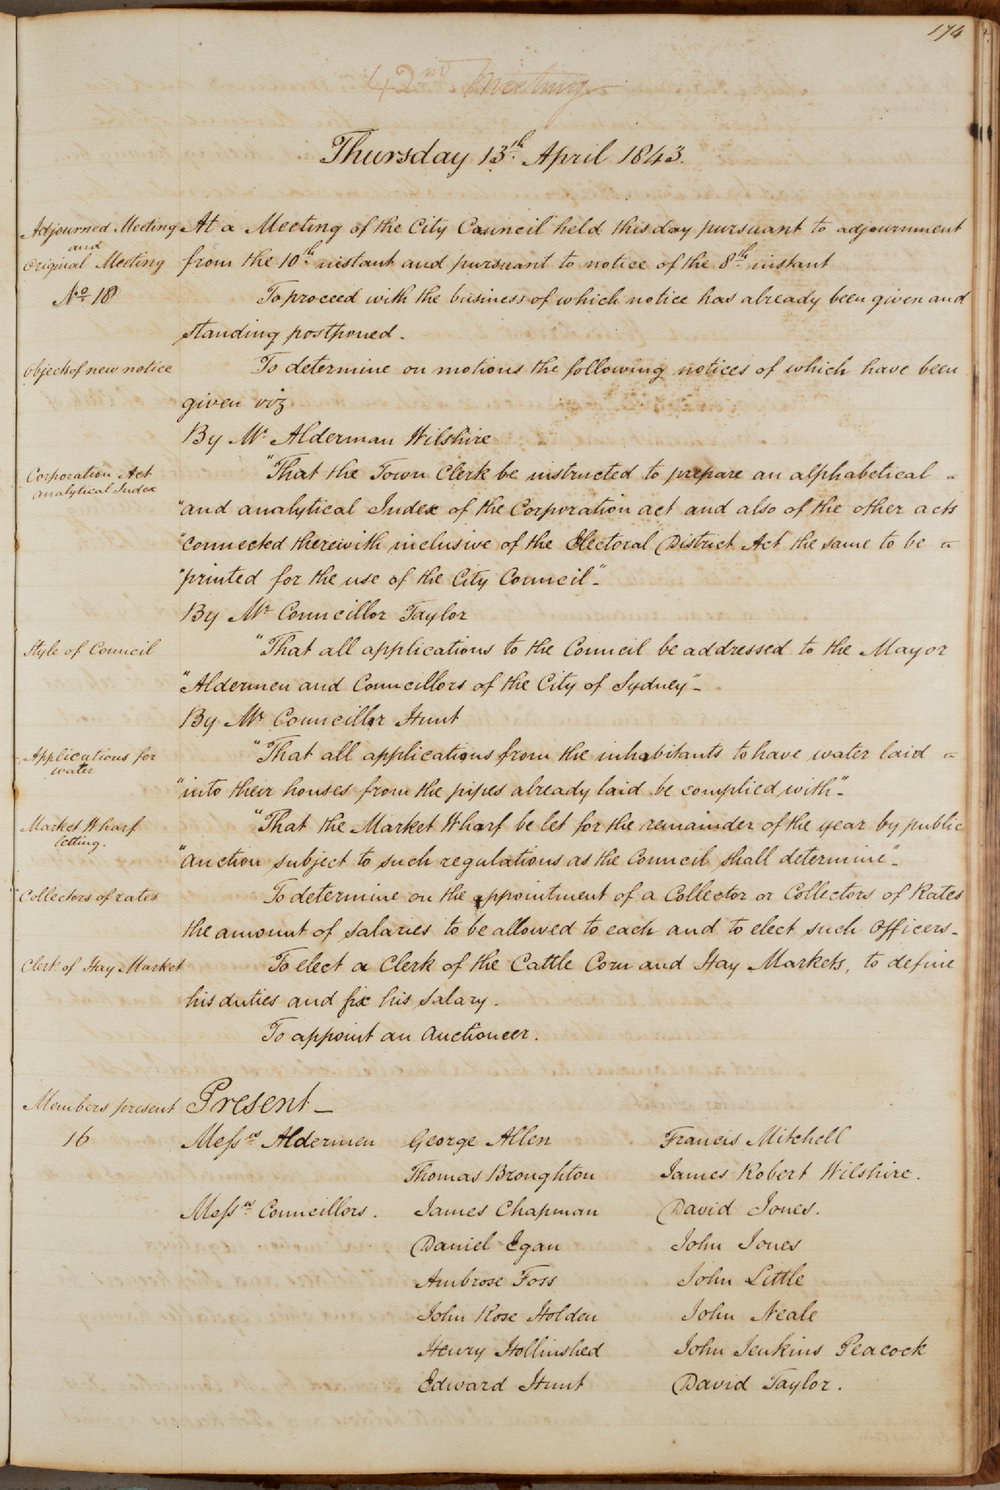 174
42nd Meeting
Thursday 13th April 1843.
Adjourned Meeting At a Meeting of the City Council held this day pursuant to adjournment
and
Original Meeting from the 10th instant and pursuant to notice of the 8th instant
No 18 To proceed with the business of which notice has already been given and
standing postponed.
Object of new notice To determine on motions the following notices of which have been
given viz
By Mr Alderman Wilshire
Corporation Act "That the Town Clerk be instructed to prepare an alphabetical "
analytical Index
"and analytical Index of the Corporation act and also of the other acts
"connected therewith inclusive of the Electoral District Act the same to be "
"printed for the use of the City Council"-
By Mr Councillor Taylor
Style of Council "That all applications to the Council be addressed to the Mayor
"Aldermen and Councillors of the City of Sydney"-
By Mr Councillor Hunt
Applications for "That all applications from the inhabitants to have water laid "
water
"into their houses from the pipes already laid be complied with"-
Market Wharf "That the Market Wharf be let for the remainder of the year by public
letting.
"auction subject to such regulations as the Council shall determine"-
Collectors of rates To determine on the appointment of a Collector or Collectors of Rates
the amount of salaries to be allowed to each and to elect such Officers-
Clerk of Hay Market To elect a Clerk of the Cattle Corn and Hay Markets, to define
his duties and fix his salary.
To appoint an Auctioneer.
Members present Present-
16 Messrs Aldermen George Allen Francis Mitchell
Thomas Broughton James Robert Wilshire.
Messrs Councillors. James Chapman David Jones.
Daniel Egan John Jones
Ambrose Foss John Little
John Rose Holden John Neale
Henry Hollinshed John Jenkins Peacock
Edward Hunt David Taylor.